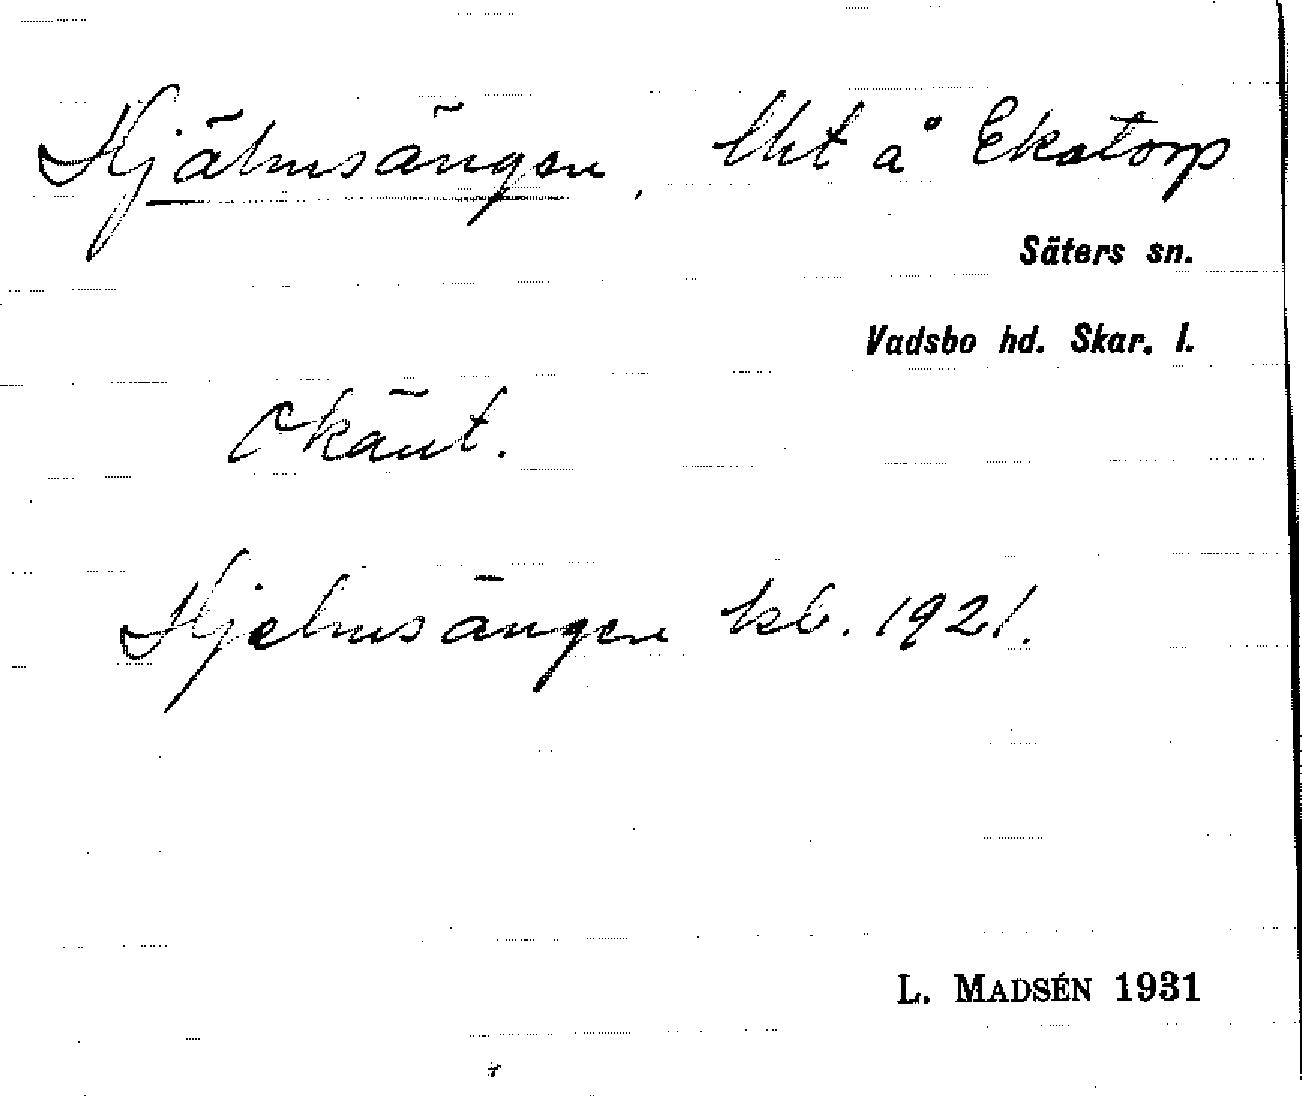 Hjälmsängen, lht å Ekatorp
Säters sn.
Vadsbo hd. Skar. l.
Okänt.
Hjelmsängen kb. 1921.
L. MADSÉN 1931